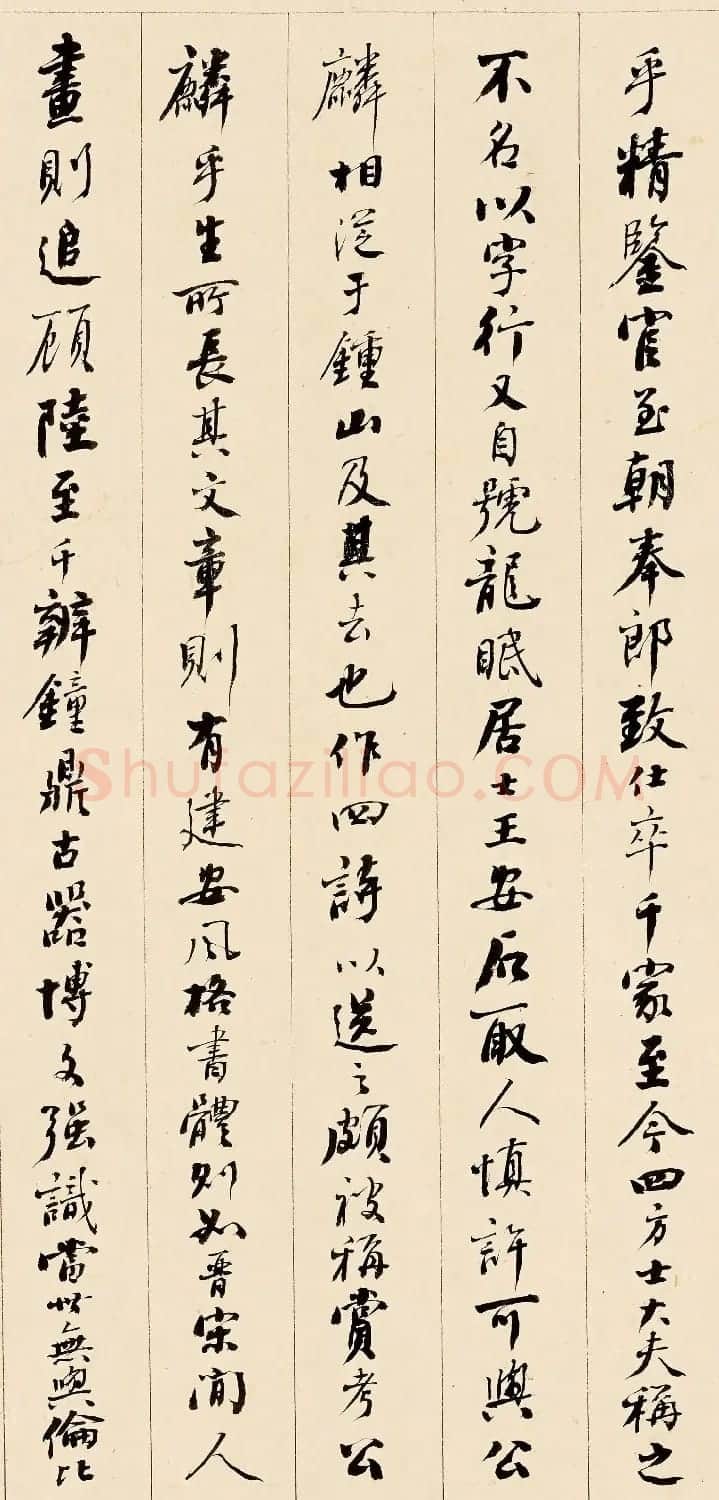 乎精鑒官至朝奉郎致仕卒于家至今四方士大夫稱之
不名以字行又自號龍眠居士王安石取人慎許可與公
麟相從于鍾山及其去也作四詩以送之頗被稱賞考公
麟平生所長其文章則有建安風格書體則如晋宋間人
畫則追顧陸至于辨鐘鼎古器博文强識當世無與倫比
Shufaziliao.COM